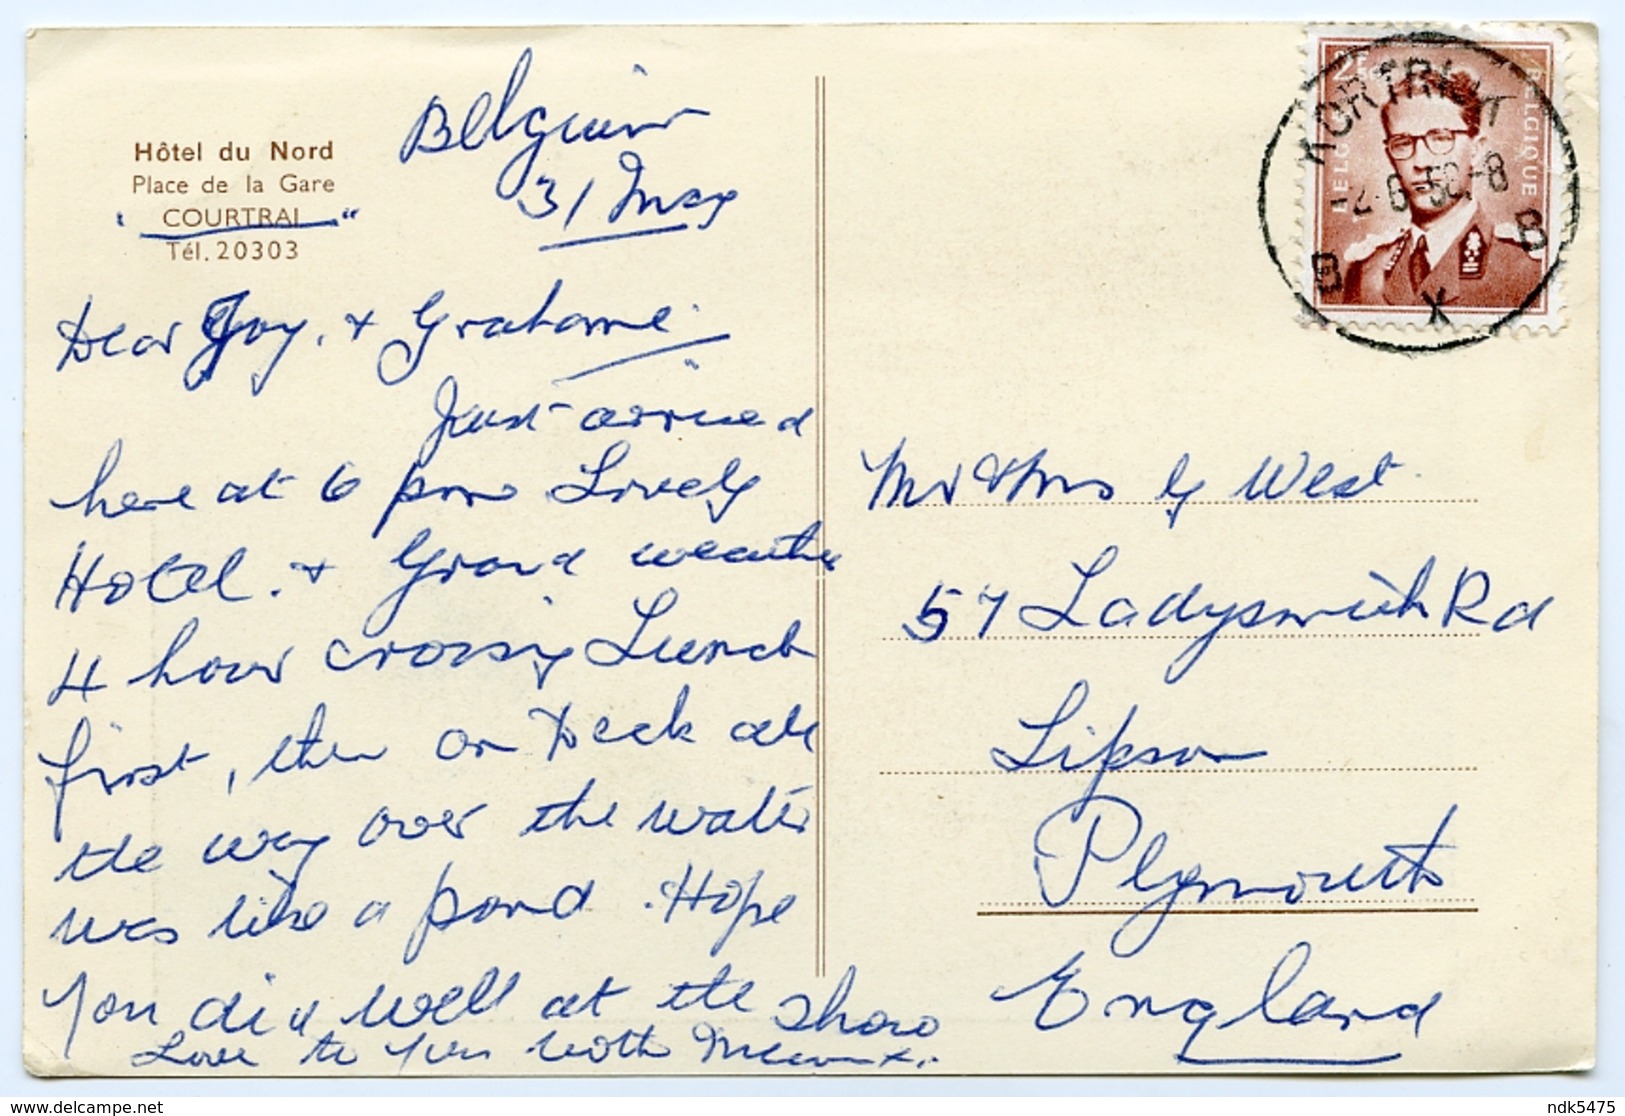 Hôtel du Nord
Place de la Gare
"COURTRAI"
Tél. 20303
Belgium
31 May
Dear Joy, & Grahame.
Just arrived
here at 6 pm Lovely
Hotel. & Grand weather
4 hour crossing Lunch
first, then on Deck all
the way over the water
was like a pond. Hope
you did well at the show
Love to you both
Mr & Mrs G West.
57 Ladysmith Rd
Lipson
Plymouth
England
BELGIË BELGIQUE
KORTRIJK
B B
X
ndk5475